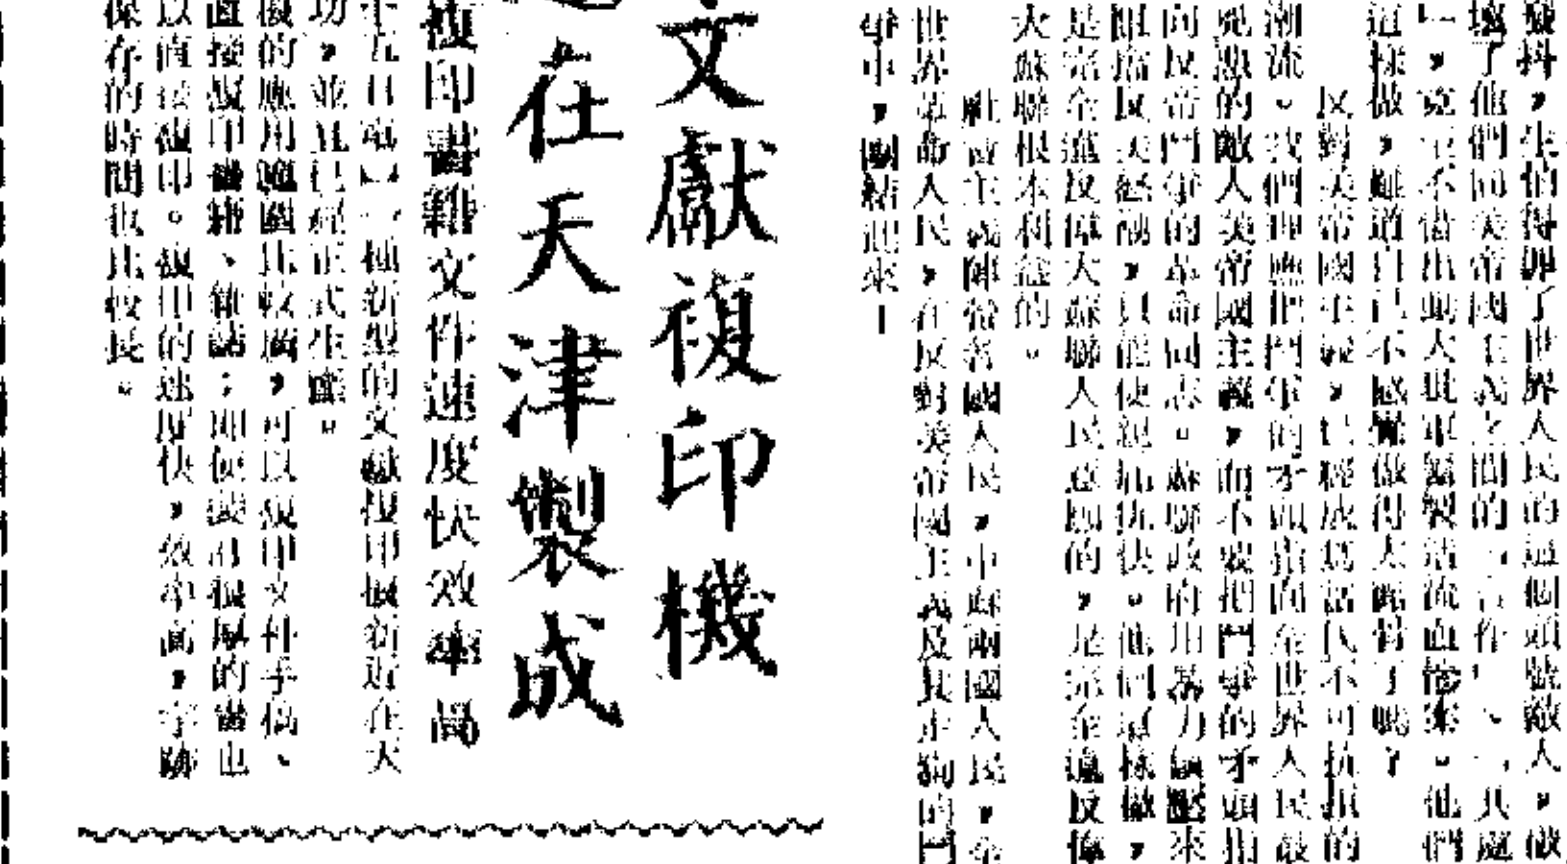 發抖，生怕得罪了世界人民的這個頭號敵人，破
壞了他們同美帝國主義之間的「合作」、「共處
」，竟至不惜出動大批軍警製造流血慘案。他們
這樣做，難道自己不感覺做得太露骨了嗎？
反對美帝國主義，已經成爲當代不可抗拒的
潮流。我們理應把鬥爭的矛頭指向全世界人民最
兇惡的敵人美帝國主義，而不要把鬥爭的矛頭指
向反帝鬥爭的革命同志。蘇聯政府用暴力鎮壓來
阻擋反美怒潮，只能使親痛仇快。他們這樣做，
是完全違反偉大蘇聯人民意願的，是完全違反偉
大蘇聯根本利益的。
社會主義陣營各國人民，中蘇兩國人民，全
世界革命人民，在反對美帝國主義及其走狗的鬥
爭中，團結起來！
文獻複印機
在天津製成
複印書籍文件速度快效率高
十五日電 一種新型的文獻複印機新近在天
功，並且已經正式生產。
機的應用範圍比較廣，可以複印文件手稿、
直接複印書籍、雜誌；即使裝訂很厚的書也
以直接複印。複印的速度快，效率高，字跡
保存的時間也比較長。